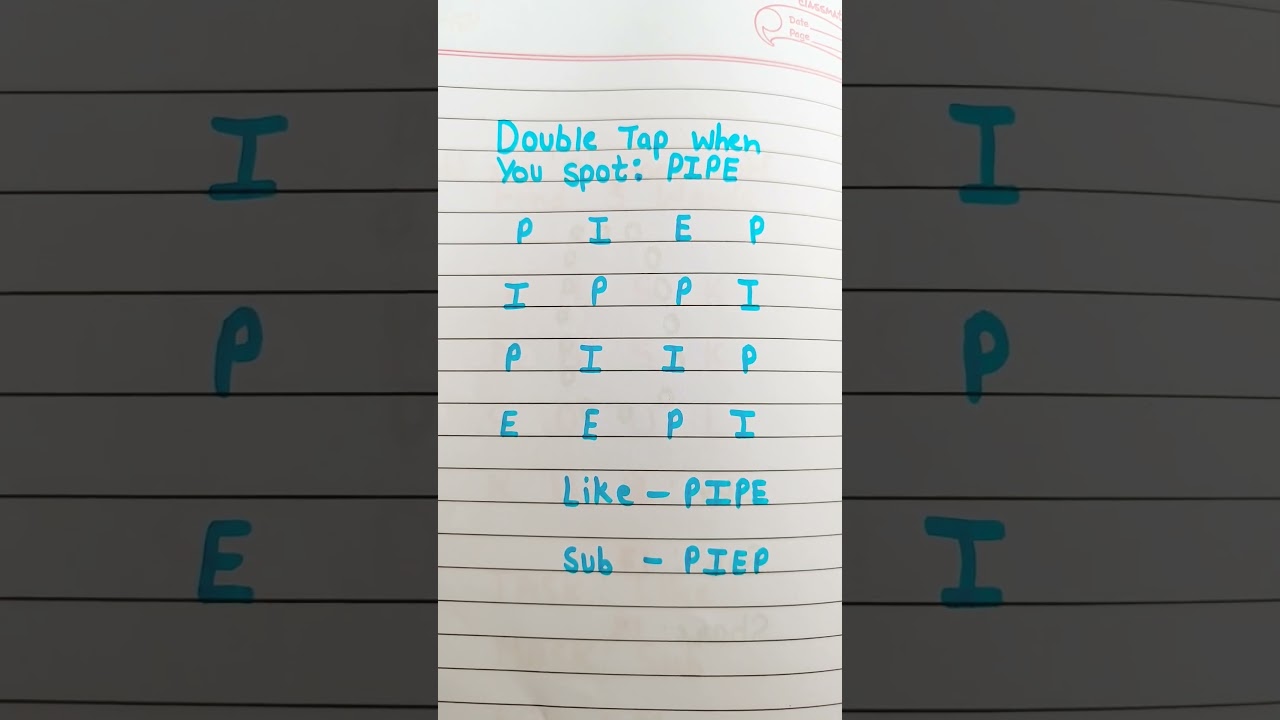 CLASSMATE
Date
Page
Double Tap when
You spot: PIPE
P I E P
I P P I
P I I P
E E P I
Like - PIPE
Sub - PIEP
I
P
E
I
P
I